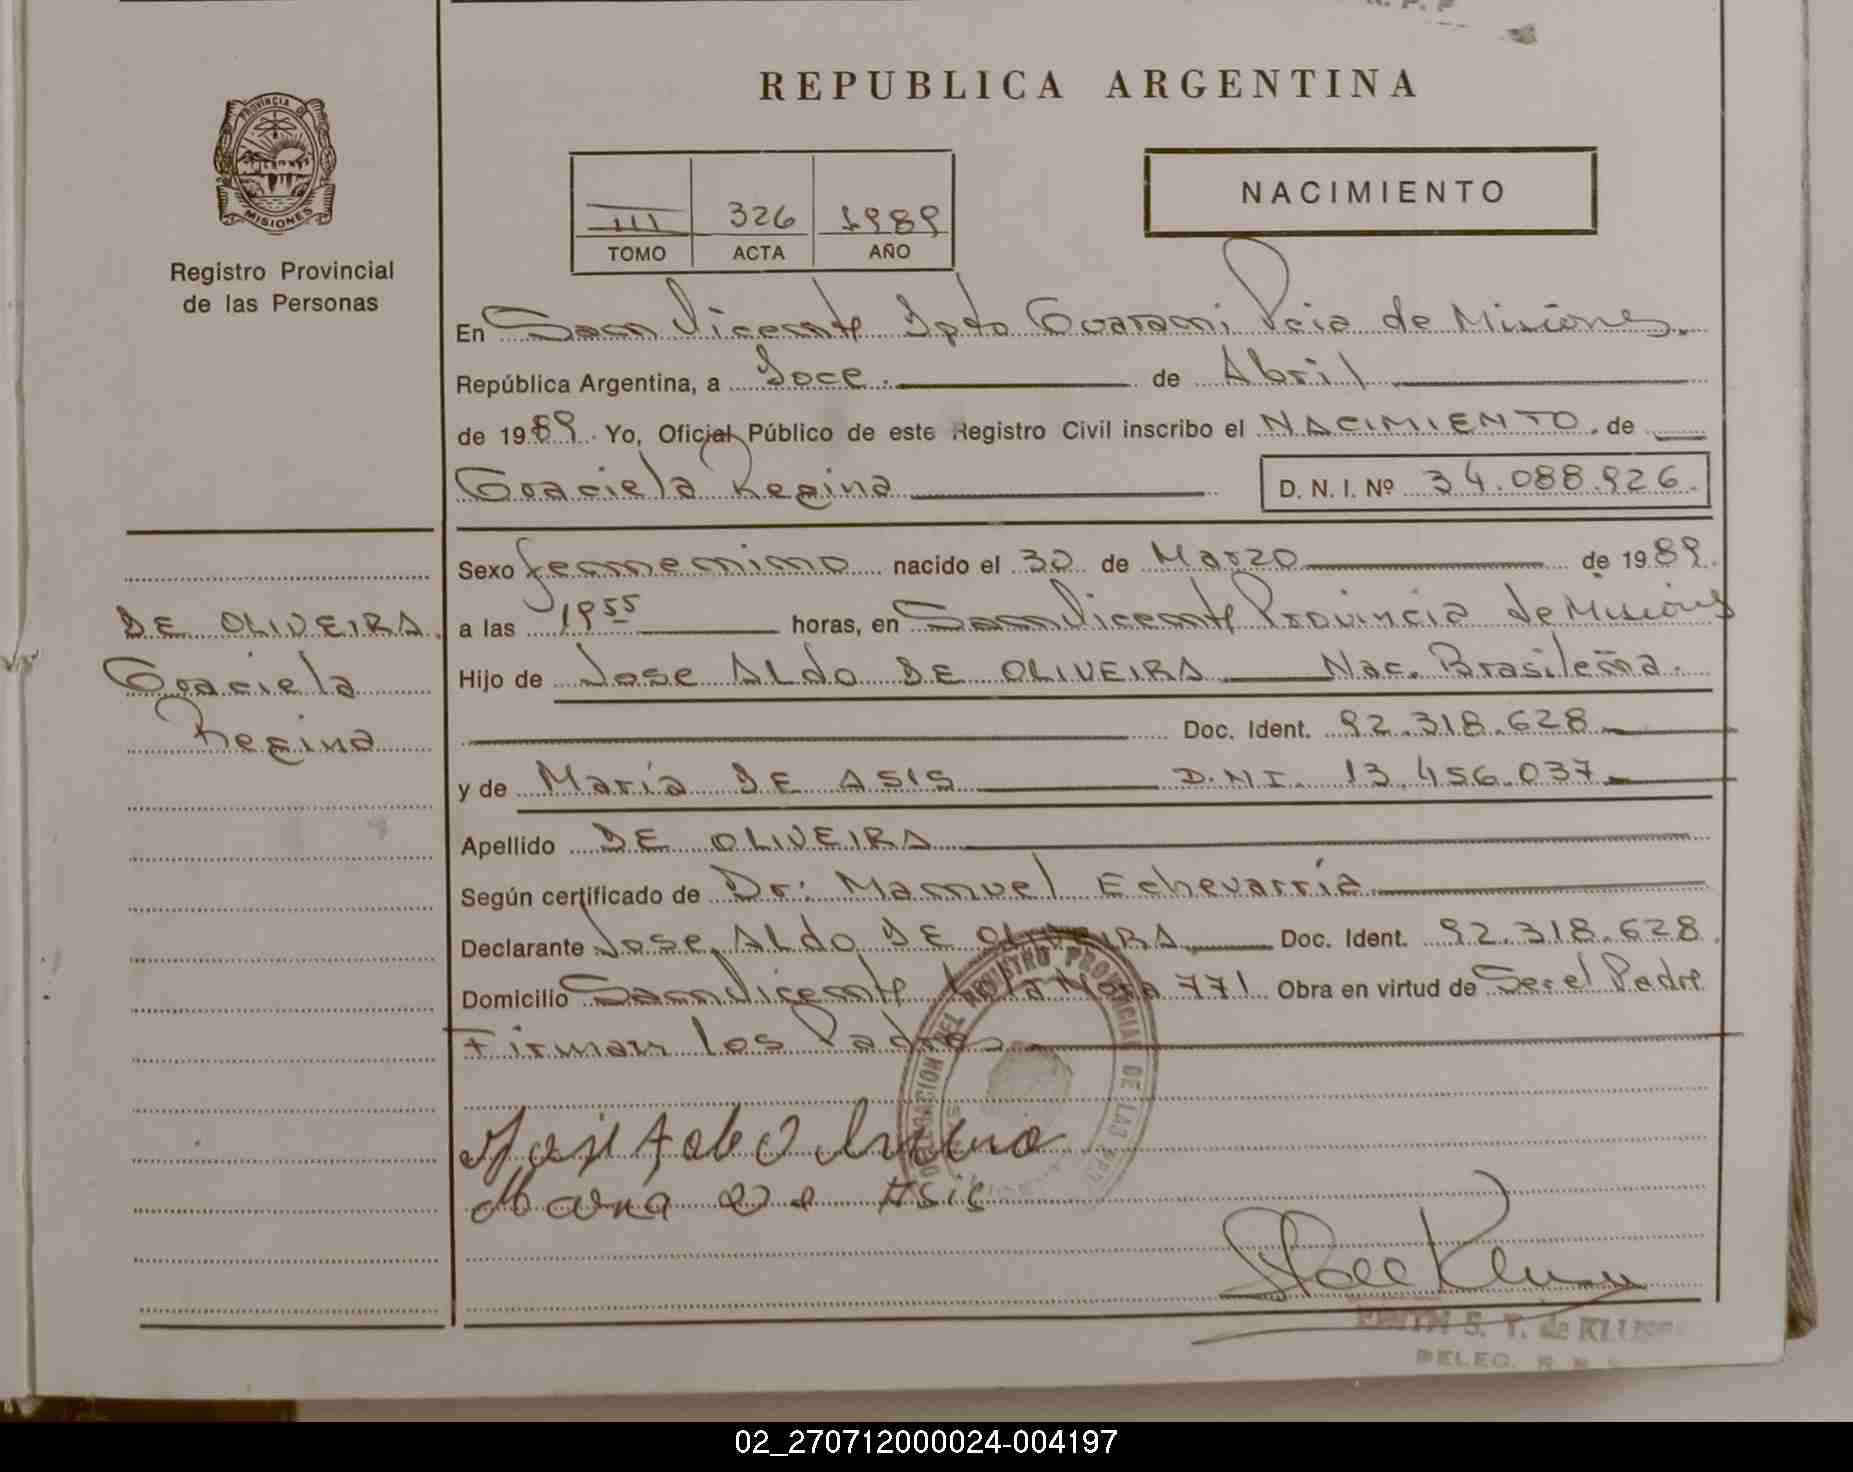 REPUBLICA ARGENTINA
PROVINCIA DE
MISIONES
Registro Provincial
de las Personas
III 326 1989
TOMO ACTA AÑO
NACIMIENTO
En San Vicente Dpto Guarani Pcia de Misiones.
República Argentina, a Doce. de Abril
de 1989. Yo, Oficial Público de este Registro Civil inscribo el NACIMIENTO. de
Graciela Regina D. N. I. Nº 34.088.926.
Sexo femenino nacido el 30 de Marzo de 1989.
DE OLIVEIRA.
Graciela
Regina
a las 19 55 horas, en San Vicente Provincia de Misiones
Hijo de Jose ALdo DE OLIVEIRA Nac. Brasileña.
Doc. Ident. 92.318.628
y de María DE ASIS D.N.I. 13.456.037
Apellido DE OLIVEIRA
Según certificado de Dr: Manuel Echevarría
Declarante Jose ALdo DE OLIVEIRA Doc. Ident. 92.318.628.
Domicilio San Vicente 771 Obra en virtud de Ser el Padre
Firman los Padres
DEL REGISTRO PROVINCIAL DE LAS
Maria de Asis
S. T. de
DELEG.
02_270712000024-004197